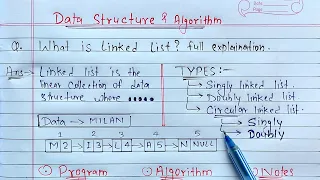 Data Structure & Algorithm
Q. What is Linked List? full explaination.
Ans→ Linked list is the
linear collection of data
structure where .....
TYPES:-
→ Singly linked list.
→ Doubly linked list.
→ Circular linked list.
→ Singly
→ Doubly
Data → MILAN
1 2 3 4 5
M 2 → I 3 → L 4 → A 5 → N NULL
Program Algorithm Notes